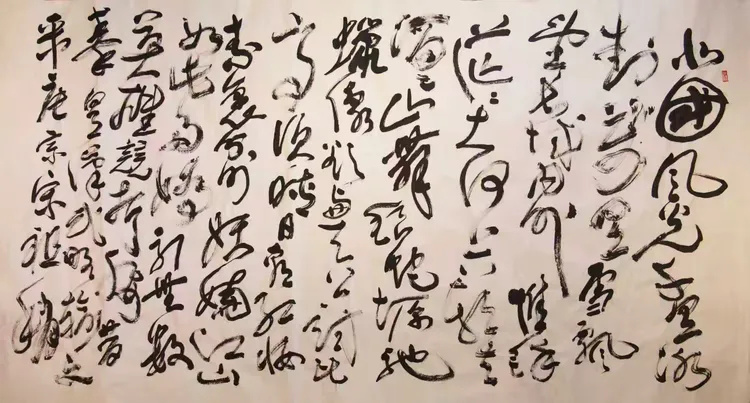 北國風光千里冰
封萬里雪飄
望長城内外惟餘
莽莽大河上下頓失
滔滔山舞銀蛇原馳
蠟象欲與天公試比
高須晴日看紅妝
素裹分外妖嬈江山
如此多嬌引無數
英雄競折腰昔
秦皇漢武略輸文
采唐宗宋祖稍